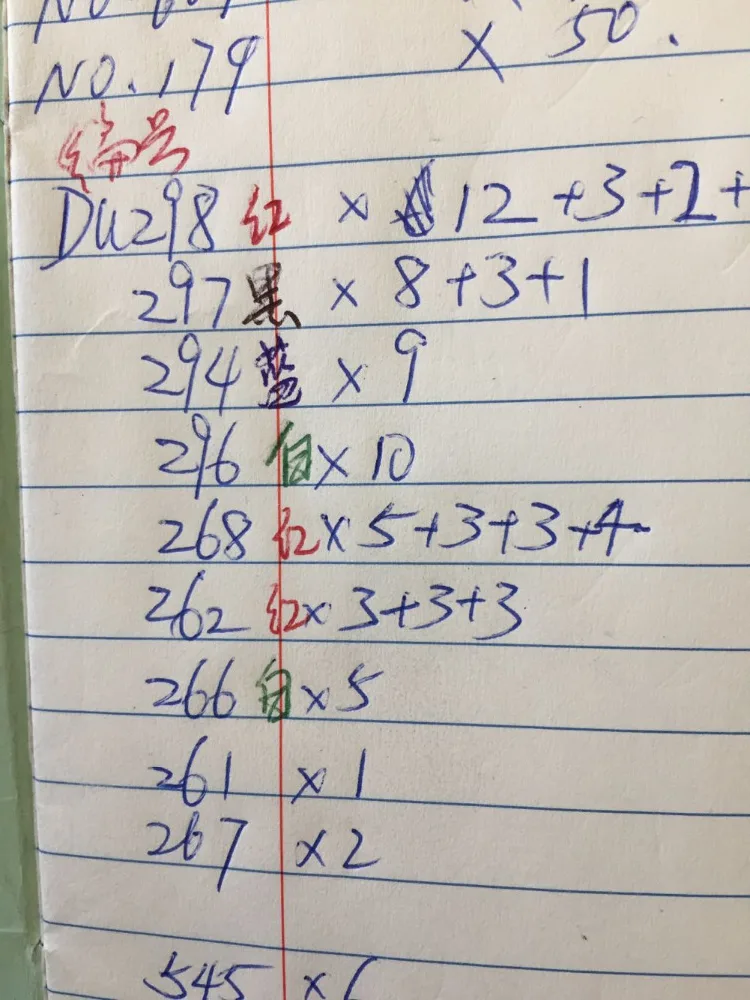 NO.179 × 50.
编号
Du298 红 × 12+3+2+
297 黑 × 8+3+1
294 蓝 × 9
296 白 × 10
268 红 × 5+3+3+4
262 红 × 3+3+3
266 白 × 5
261 × 1
267 × 2
545 ×